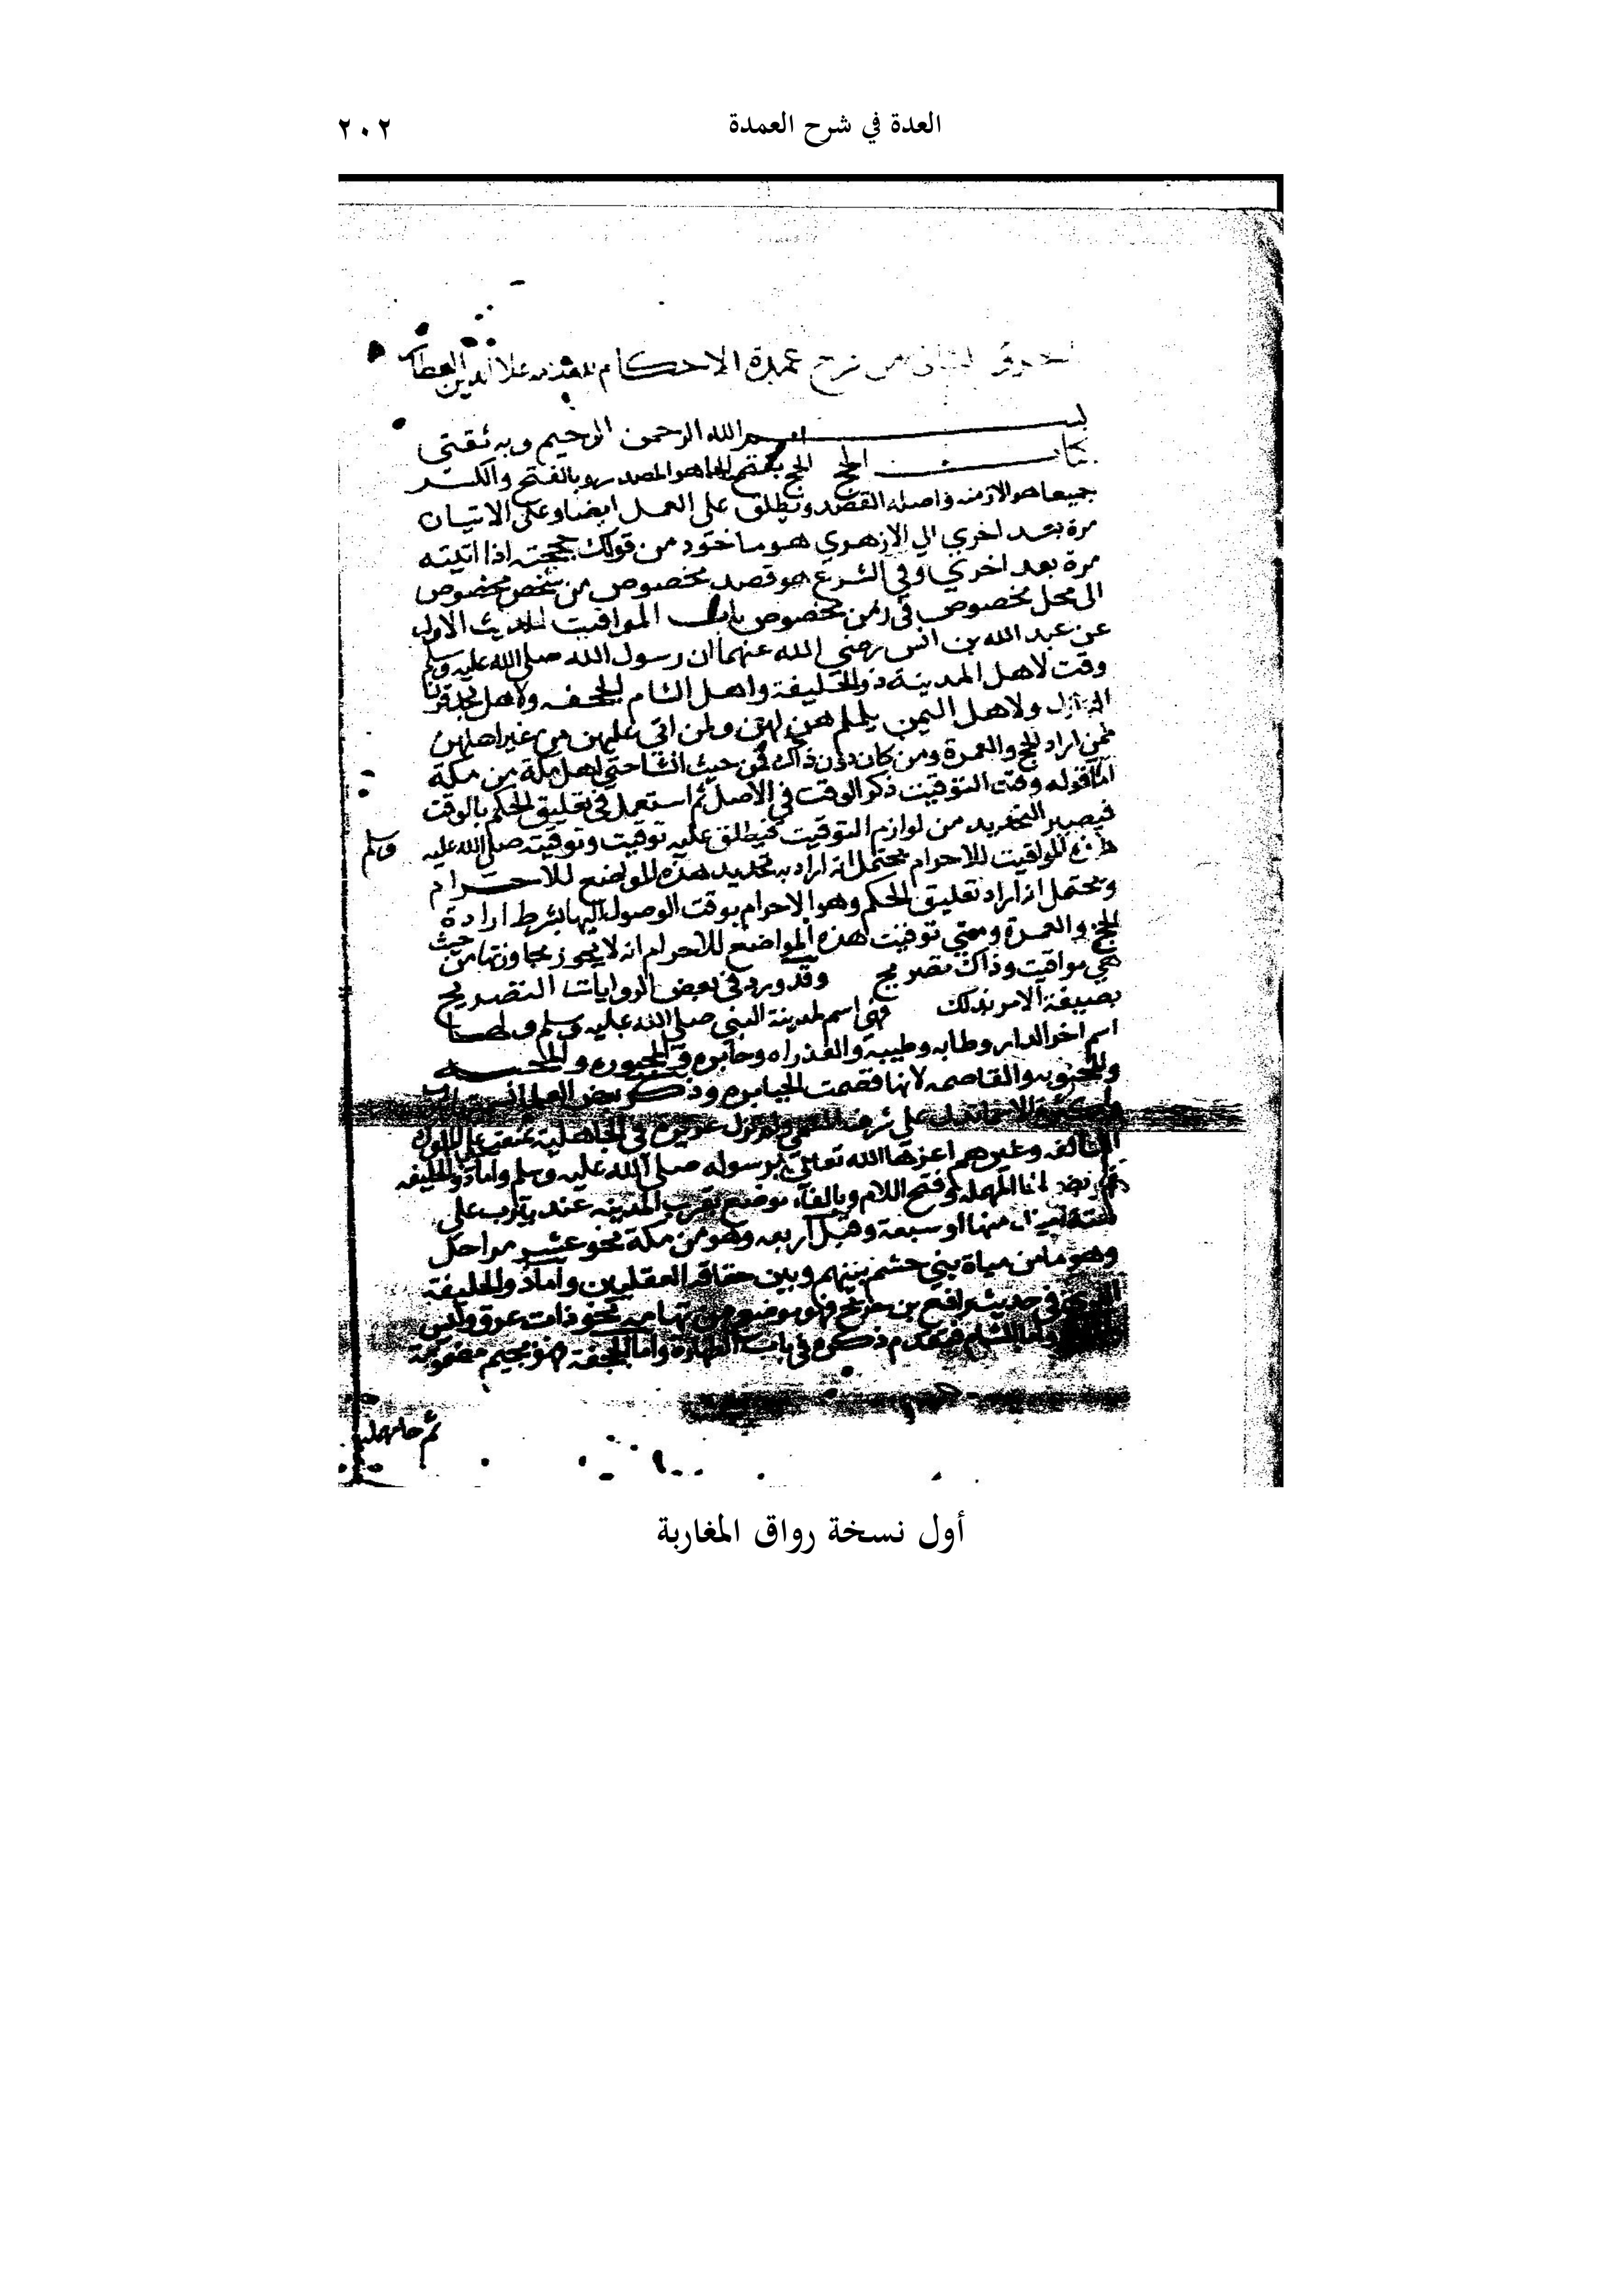 العدة في شرح العمدة
٢٠٢
عمدة الاحكام علا الدين العطار
بسم الله الرحمن الرحيم وبه ثقتي
كتاب الحج الحج بفتح الحا هو المصدر وبالفتح والكسر
جميعا هو الازمنه واصله القصد ويطلق على العمل ايضا وعلى الاتيان
مرة بعد اخري الازهري هو ماخود من قولك حججته اذا اتيته
مرة بعد اخري وفي الشرع هو قصد مخصوص من شخص مخصوص
الى محل مخصوص في زمن مخصوص باب المواقيت الحديث الاول
عن عبد الله بن انس رضي الله عنهما ان رسول الله صلى الله عليه وسلم
وقت لاهل المدينة ذو الحليفة واهل الشام الجحفه ولاهل نجد قرن
المنازل ولاهل اليمن يلملم هن لهن ولمن اتي عليهن من غير اهلهن
ممن اراد الحج والعمرة ومن كان دون ذالك فمن حيث انشا حتي اهل مكة من مكة
اما قوله وقت التوقيت ذكر الوقت في الاصل ثم استعمل في تعليق الحكم بالوقت
فيصير التحديد من لوازم التوقيت فيطلق عليه توقيت وتوقيته صلى الله عليه وسلم
المواقيت للاحرام يحتمل انه اراد به تحديد هذه المواضع للاحرام
ويحتمل انه اراد تعليق الحكم وهو الاحرام بوقت الوصول اليها بشرط ارادة
الحج والعمرة ومعني توقيت هذه المواضع للاحرام انه لا يجوز مجاوزتها من حيث
هي مواقيت وذاك وقد ورد في بعض الروايات التصريح
بصيغة الامر بذلك فهي اسم لمدينة النبي صلى الله عليه وسلم ولها
اسم اخر الدار وطابه وطيبة والعذراه وجابره والمجبوره والمحبه
والمحبوبه والقاصمه لانها قصمت الجبابره وذكر بعض العلما
تدل على شرف المسمي ولم تزل عزيزه في الجاهلية
وغيرهم اعزها الله تعالى برسوله صلى الله عليه وسلم واما ذو الحليفه
المهمله وفتح اللام وبالفاء موضع بقرب المدينه عند على
ستة اميال منها او سبعة وقيل اربعه وهو من مكة نحو عشر مراحل
وهو ما من مياة بني جشم بينهم وبين العقليين واما ذو الحليفة
في حديث رافع بن خديج فهو موضع من تهامه نحو ذات عرق وليس
واما الشام فتقدم ذكره في باب الطهارة واما الجحفة فهو بجيم مضمومة
ثم حا مهملة
أول نسخة رواق المغاربة